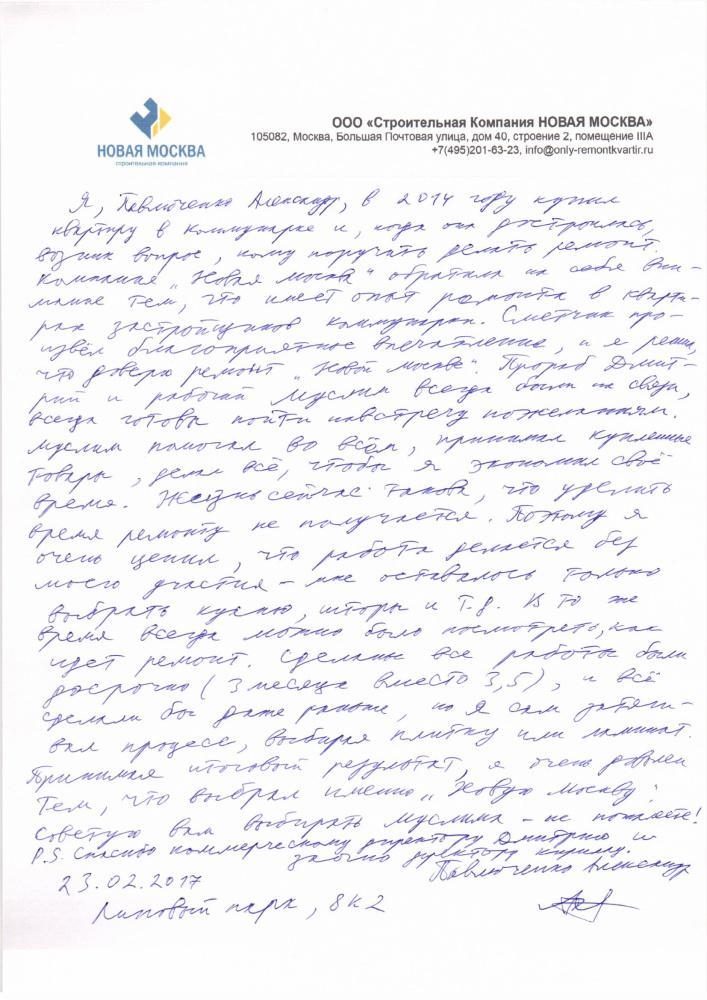 НОВАЯ МОСКВА
строительная компания
ООО «Строительная Компания НОВАЯ МОСКВА»
105082, Москва, Большая Почтовая улица, дом 40, строение 2, помещение IIIА
+7(495)201-63-23, info@only-remontkvartir.ru
Я, Павлюченко Александр, в 2014 году купил
квартиру в Коммунарке и, когда она достроилась,
возник вопрос, кому поручать делать ремонт.
Компания "Новая Москва" обратила на себя вни-
мание тем, что имеет опыт ремонта в кварти-
рах застройщиков Коммунарки. Сметчик про-
извёл благоприятное впечатление, и я решил,
что доверю ремонт "Новой Москве". Прораб Дмит-
рий и рабочий Муслим всегда были на связи,
всегда готовы пойти навстречу пожеланиям.
Муслим помогал во всём, принимал купленные
товары, делал всё, чтобы я экономил своё
время. Жизнь сейчас такова, что уделить
время ремонту не получается. Поэтому я
очень ценил, что работа делается без
моего участия - мне оставалось только
выбрать кухню, шторы и т.д. В то же
время всегда можно было посмотреть, как
идет ремонт. Сделаны все работы были
досрочно (3 месяца вместо 3,5), и всё
сделали бы даже раньше, но я сам затяги-
вал процесс, выбирая плитку или ламинат.
Принимая итоговый результат, я очень доволен
тем, что выбрал именно "Новую Москву".
Советую вам выбирать Муслима - не пожалеете!
P.S. Спасибо коммерческому директору Дмитрию и
заочно директору Кириллу.
Павлюченко Александр
23.02.2017
Липовый парк, 8к2